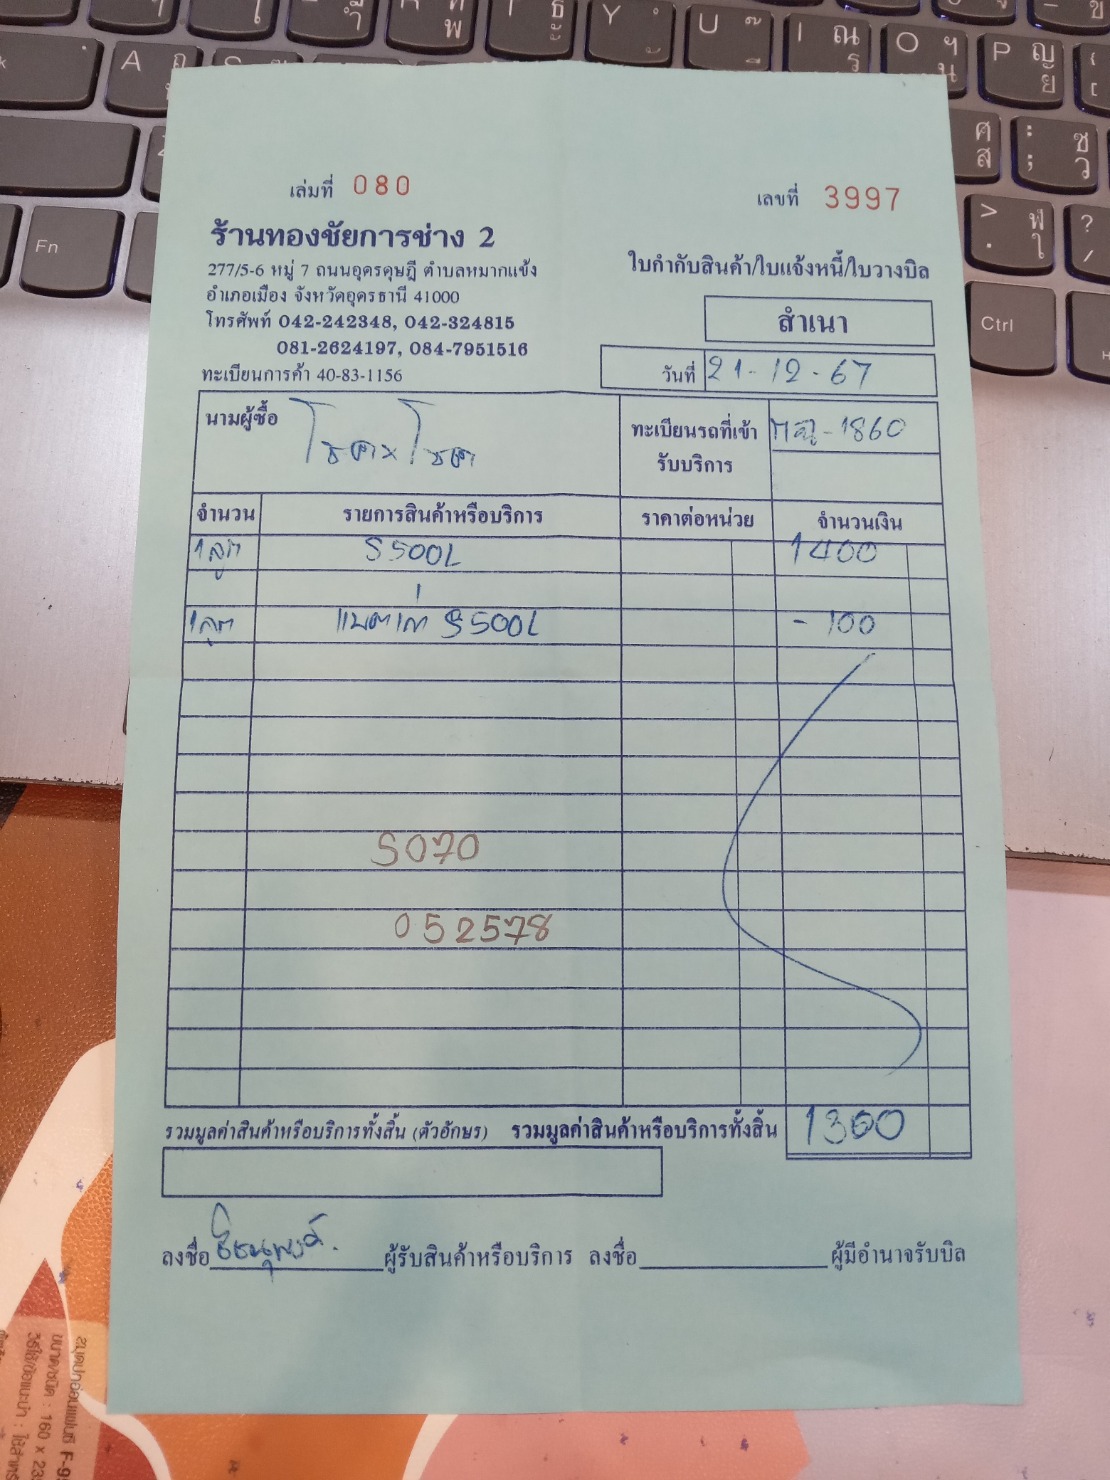 เล่มที่ 080
เลขที่ 3997
ร้านทองชัยการช่าง 2
277/5-6 หมู่ 7 ถนนอุดรดุษฎี ตำบลหมากแข้ง
อำเภอเมือง จังหวัดอุดรธานี 41000
โทรศัพท์ 042-242348, 042-324815
081-2624197, 084-7951516
ทะเบียนการค้า 40-83-1156
ใบกำกับสินค้า/ใบแจ้งหนี้/ใบวางบิล
สำเนา
วันที่ 21-12-67
นามผู้ซื้อ โชคโชค
ทะเบียนรถที่เข้า
รับบริการ
-1860
จำนวน รายการสินค้าหรือบริการ ราคาต่อหน่วย จำนวนเงิน
1 ลูก S500L 1400
1 ลูก แบตเก่า S500L - 100
S070
052578
รวมมูลค่าสินค้าหรือบริการทั้งสิ้น (ตัวอักษร) รวมมูลค่าสินค้าหรือบริการทั้งสิ้น 1300
ลงชื่อ ผู้รับสินค้าหรือบริการ ลงชื่อ ผู้มีอำนาจรับบิล
Fn
A
Y
U
I
O
P
Ctrl